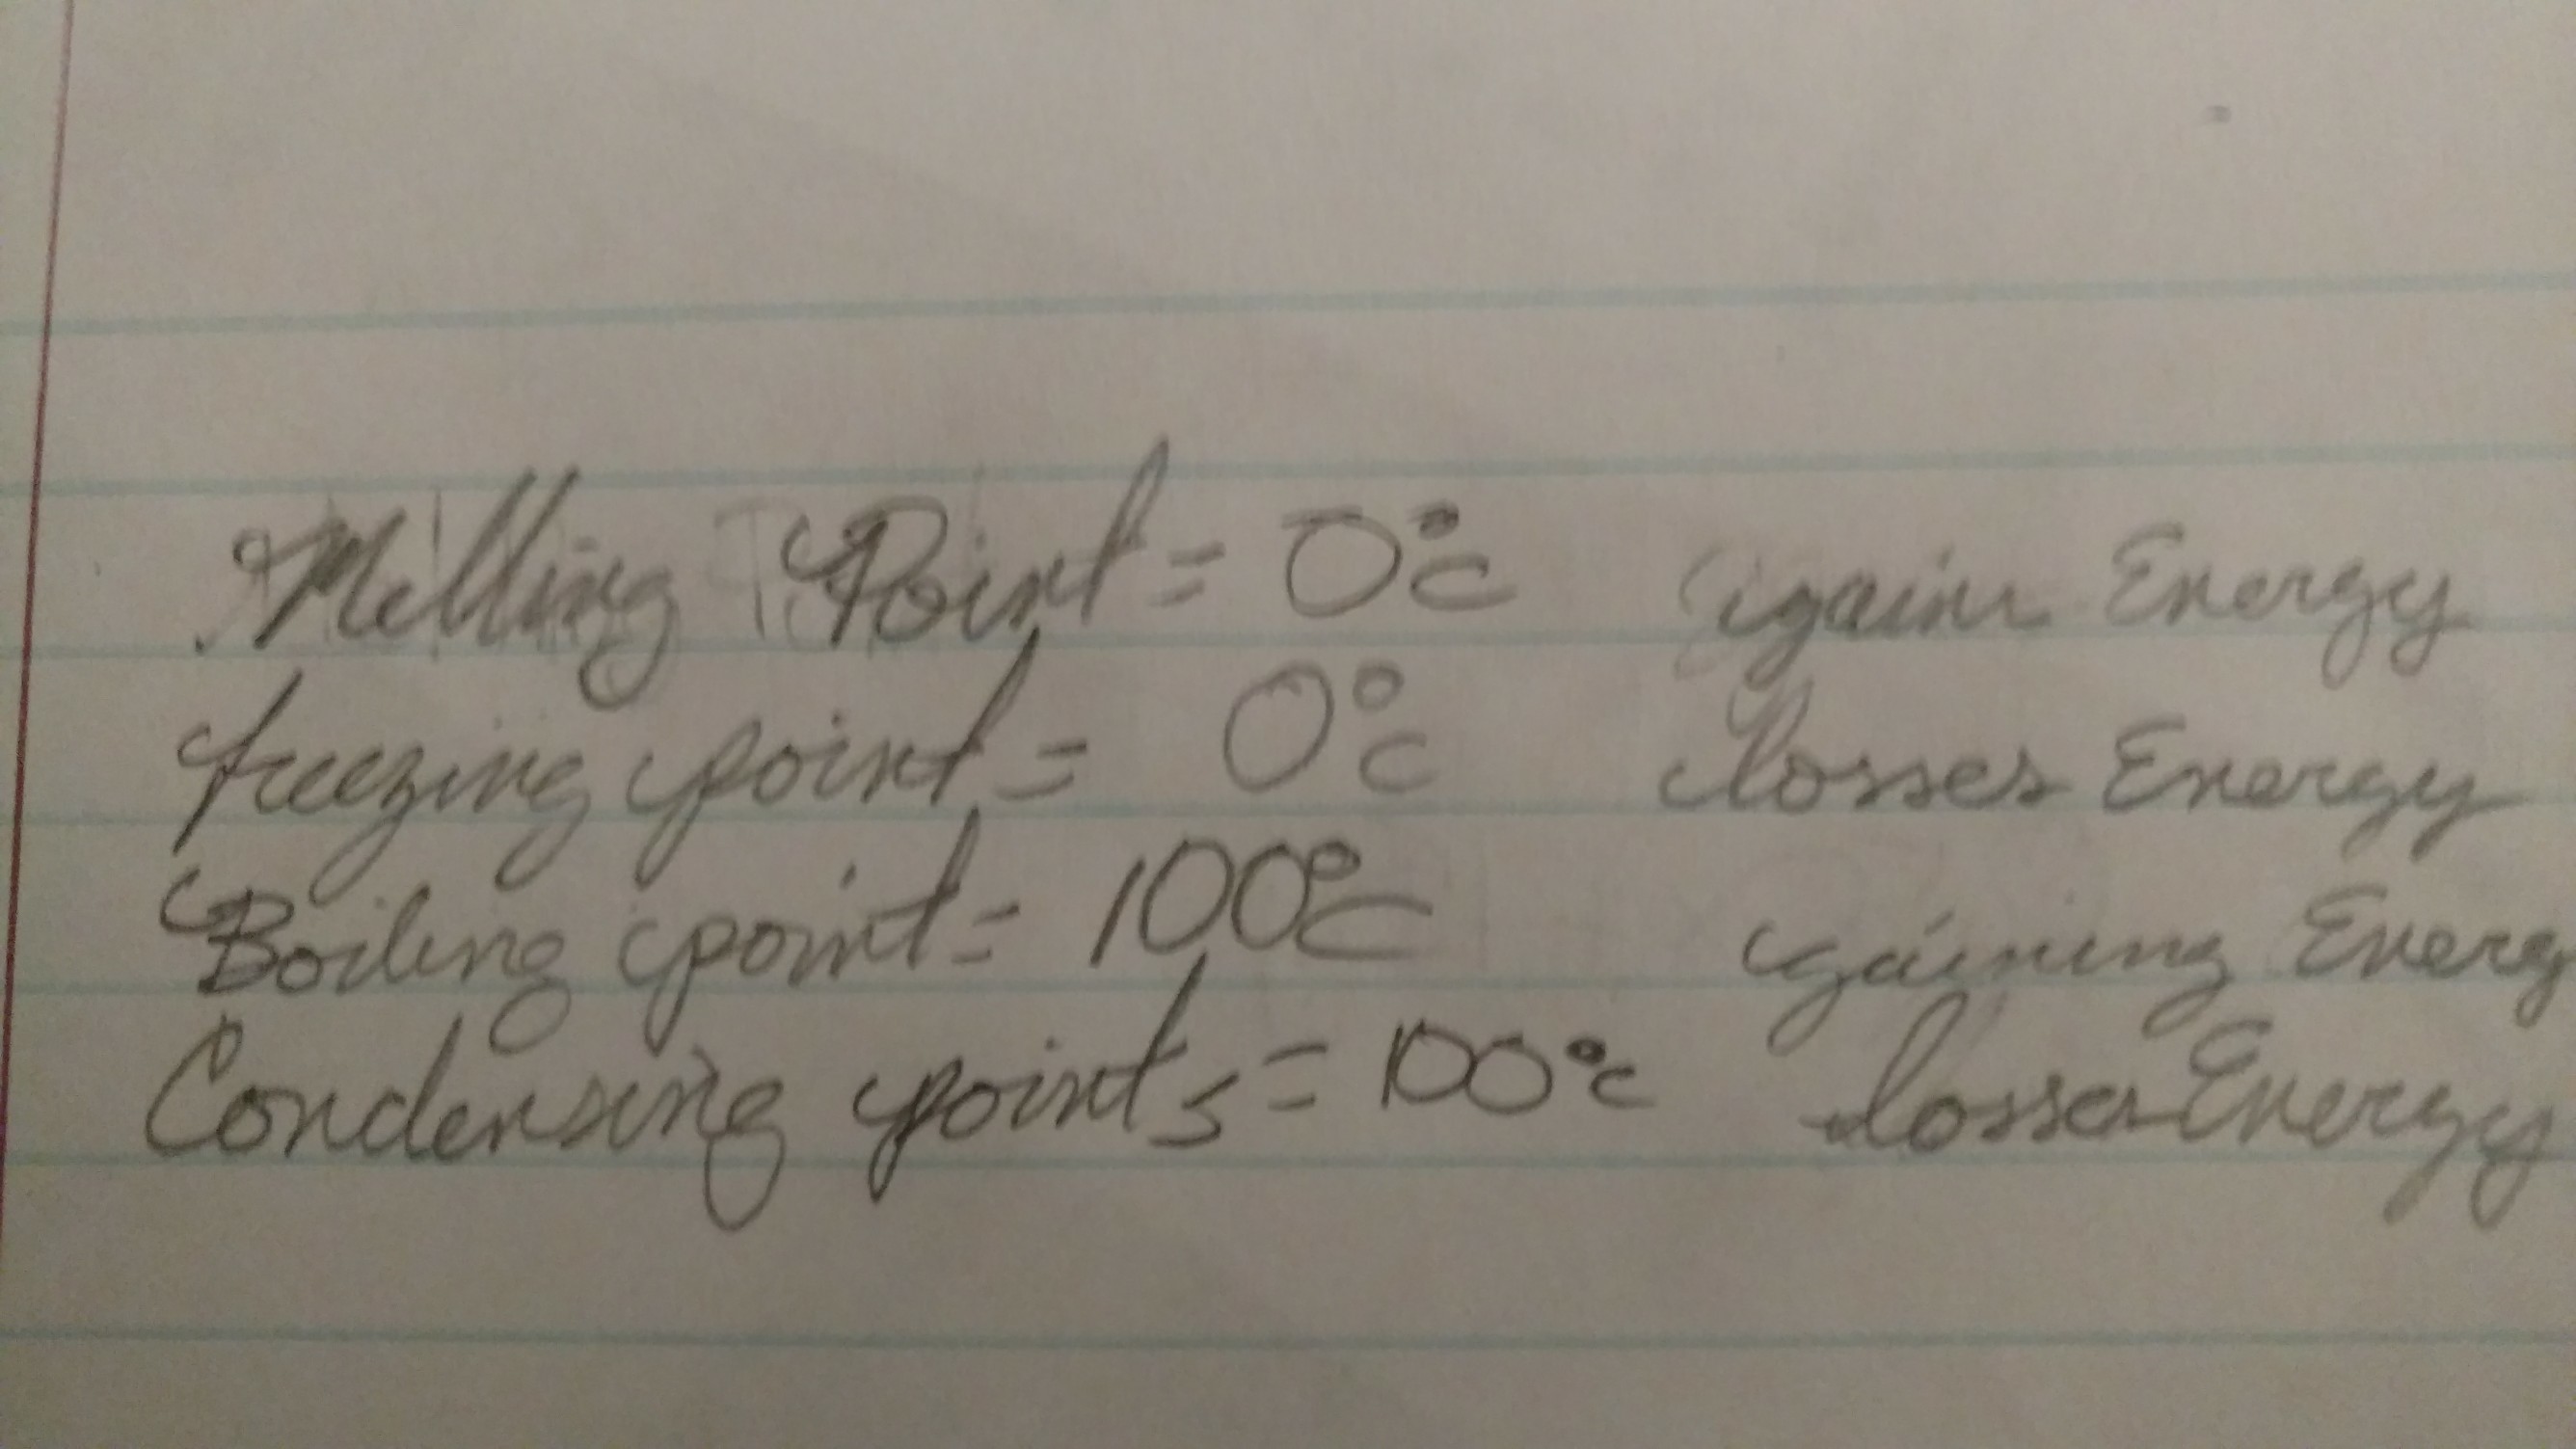 Melting Point = 0°c gains Energy
freezing point = 0°c losses Energy
Boiling point = 100°c gaining Energ
Condensing points = 100°c losses Energy